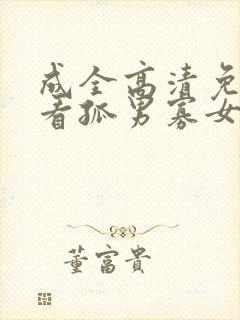 成全高清免
看孤男寡女
董富貴